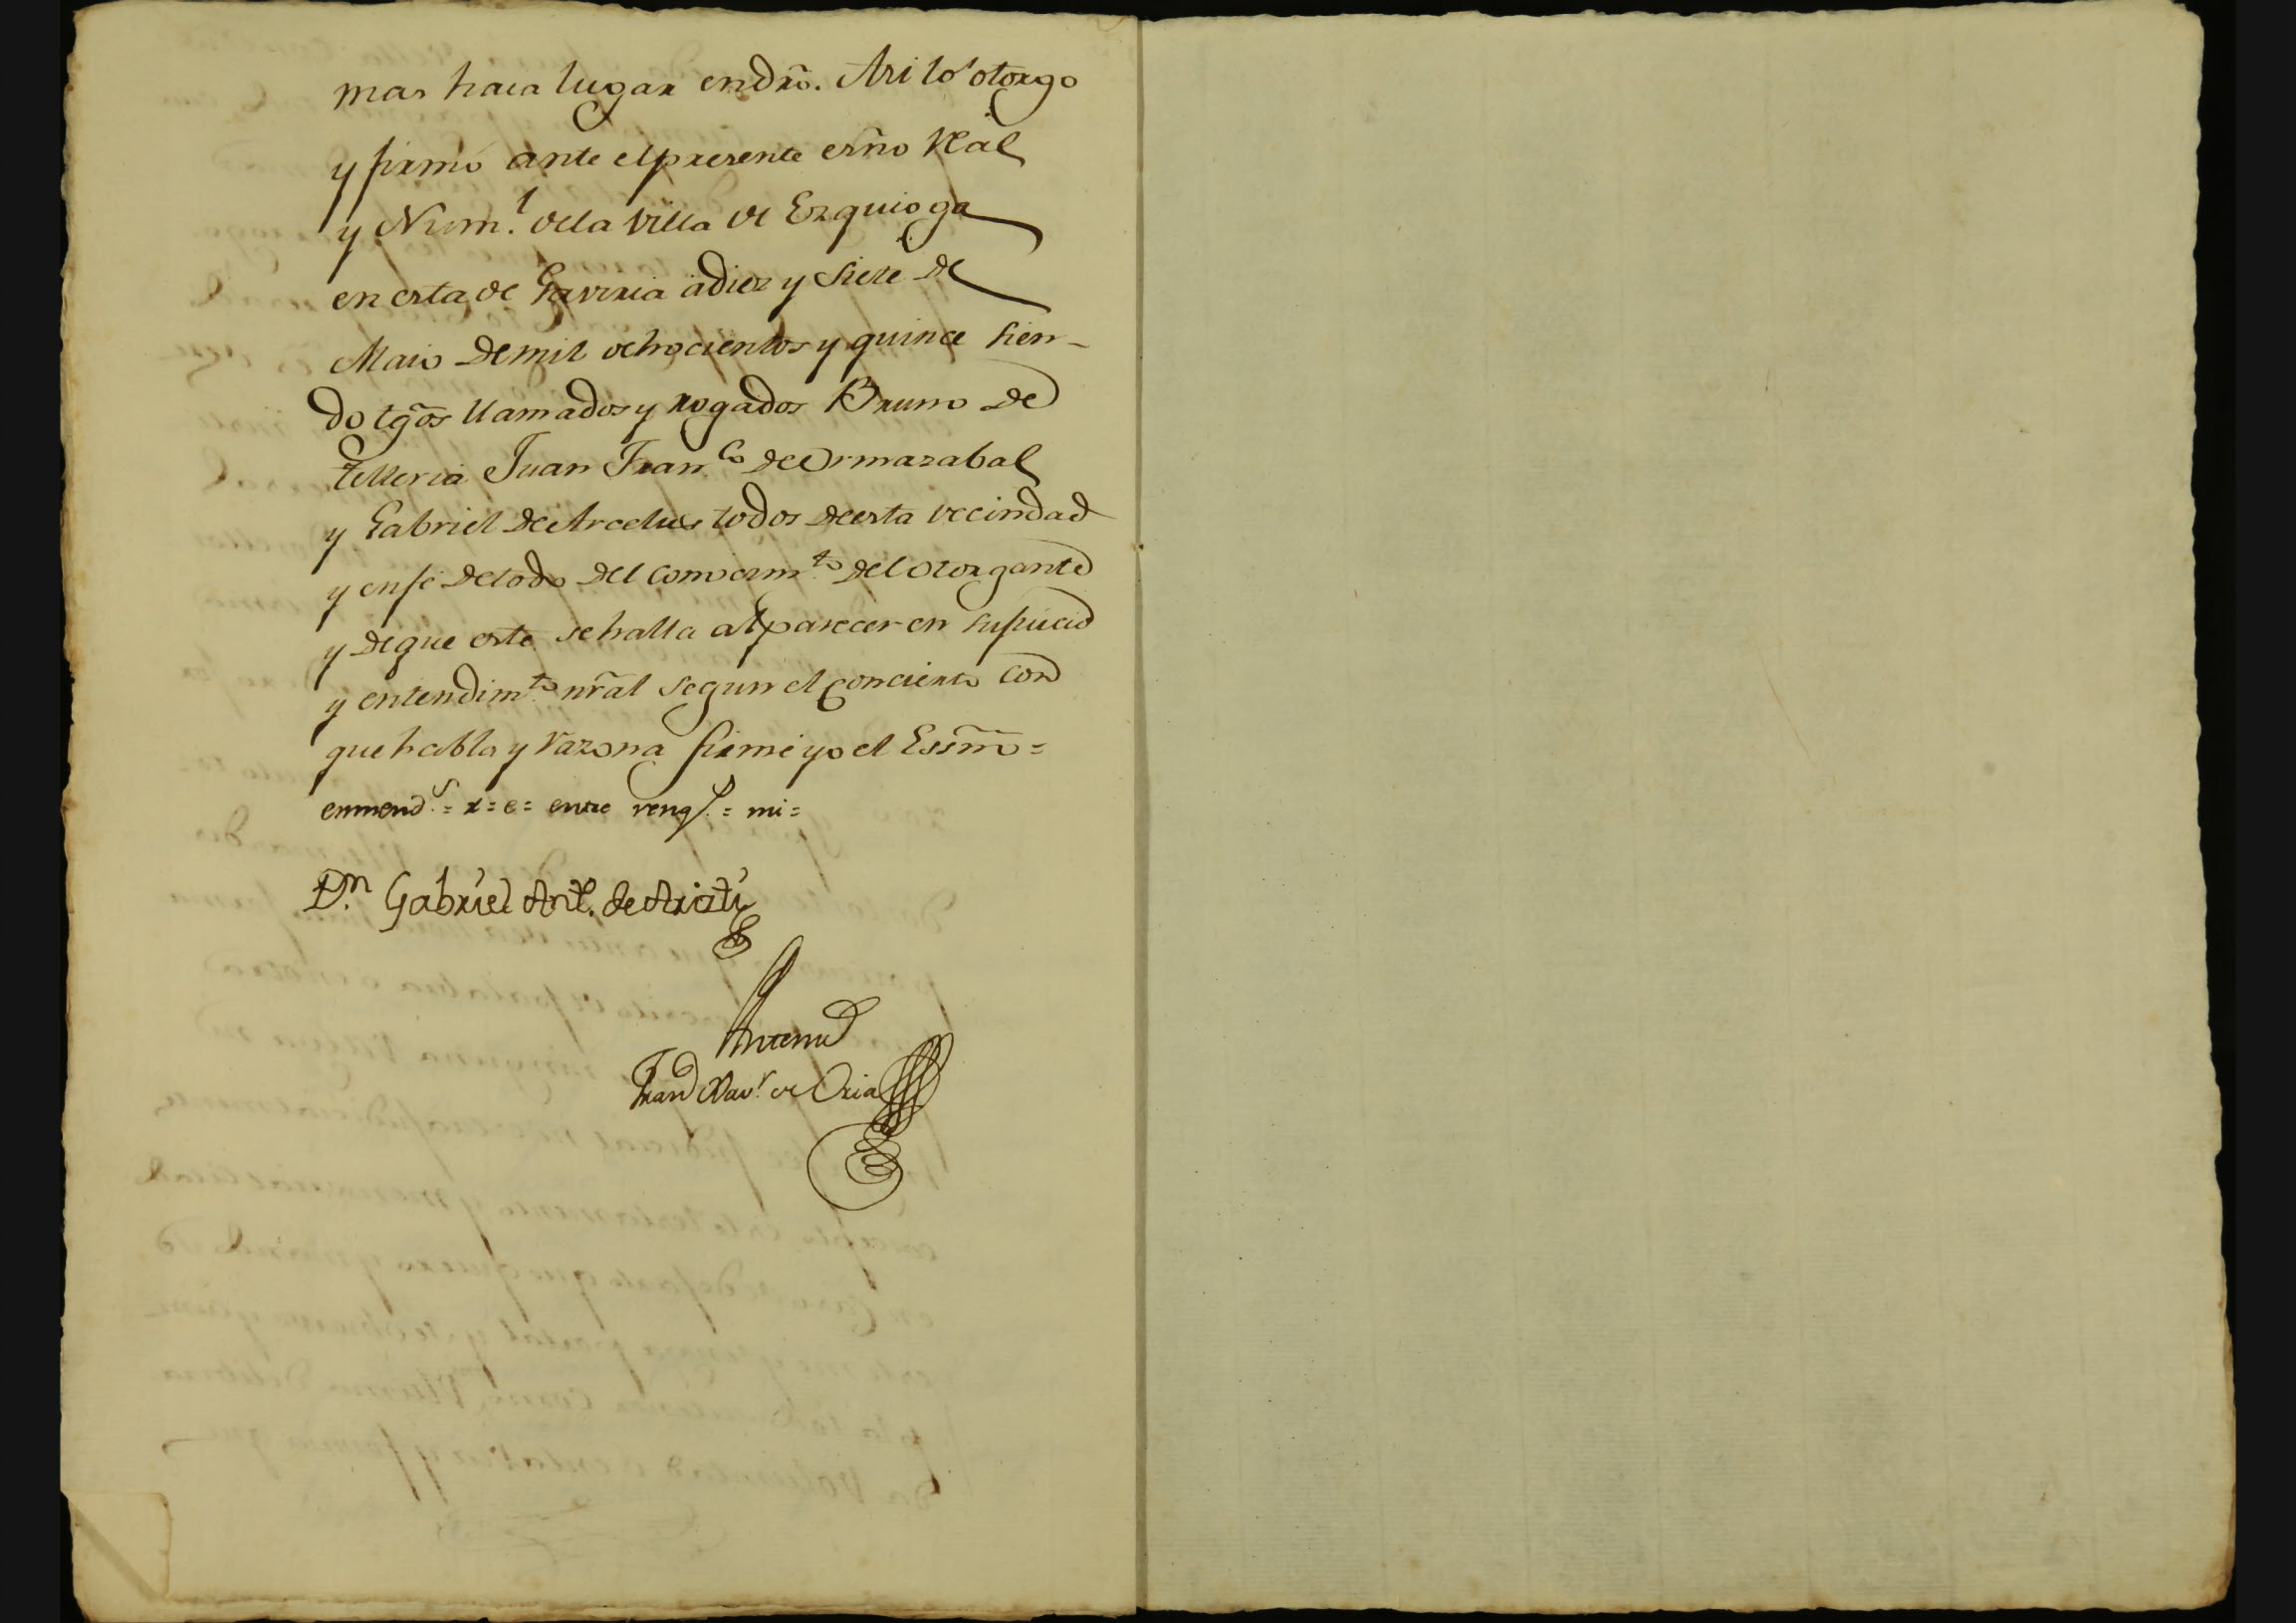 mas haia lugar en dro. Asi lo otorgo
y firmó ante el presente esño Real
y Num.l de la villa de Ezquioga
en esta de Gaviria à diez y siete de
Maio de mil ochocientos y quince sien-
do tgõs llamados y rogados Bruno de
telleria Juan Fran.co de Ormazabal
y Gabriel de Arcelus todos de esta vecindad
y en fé de todo del conocim.to del otorgante
y de que este se halla al parecer en su juicio
y entendim.to nrãl segun el concierto con
que habla y razona firmé yo el Essño =
enmend.s = x = e = entre reng.s = mi =
D.n Gabriel Ant.o de Aristi
Antemi
Fran Xav.r de Oria